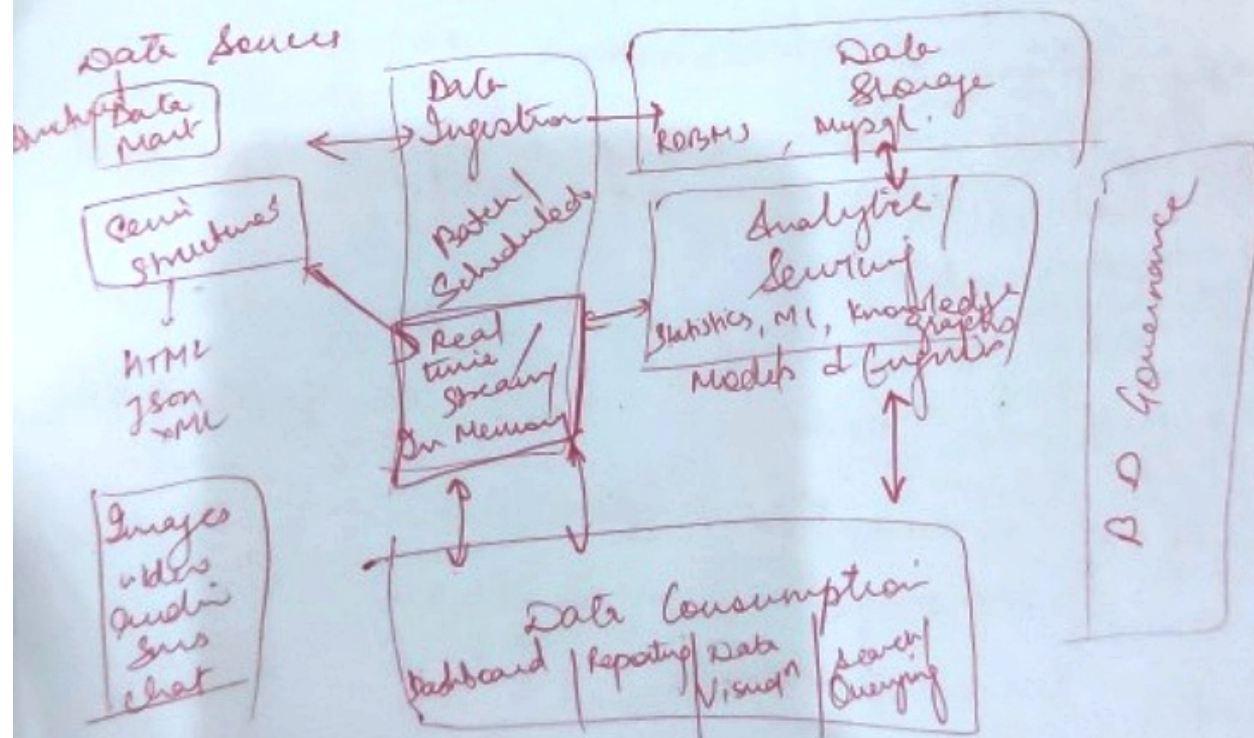 Data Sources
Data
Mart
Semi
structured
HTML
Json
XML
Images
video
audio
Sms
chat
Data
Ingestion
Batch/
Scheduled
Real
time /
Streaming
In Memory
Data
Storage
RDBMS , Mysql.
Analytic /
Servicing
Statistics, ML, Knowledge
graphs
Models & Engines
Data Consumption
Dashboard | Reporting | Data
Visuan | Search/
Querying
B D Governance